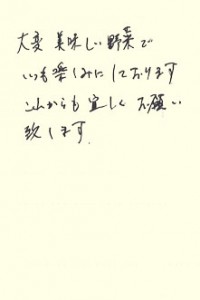 大変 美味しい野菜で
いつも楽しみにしております
これからも宜しくお願い
致します.